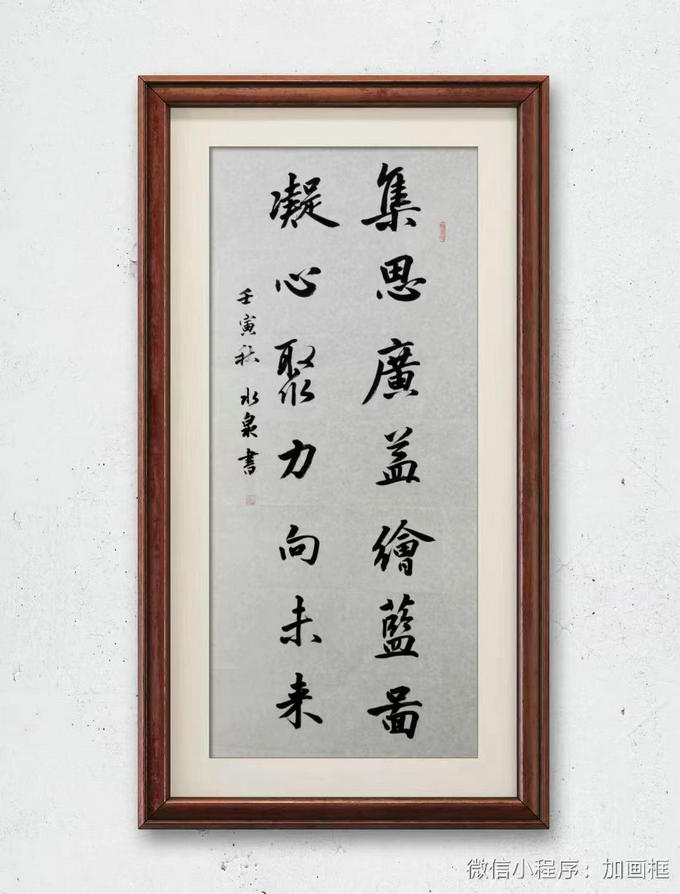 集思廣益繪藍圖
凝心聚力向未来
壬寅秋 水泉書
微信小程序：加画框